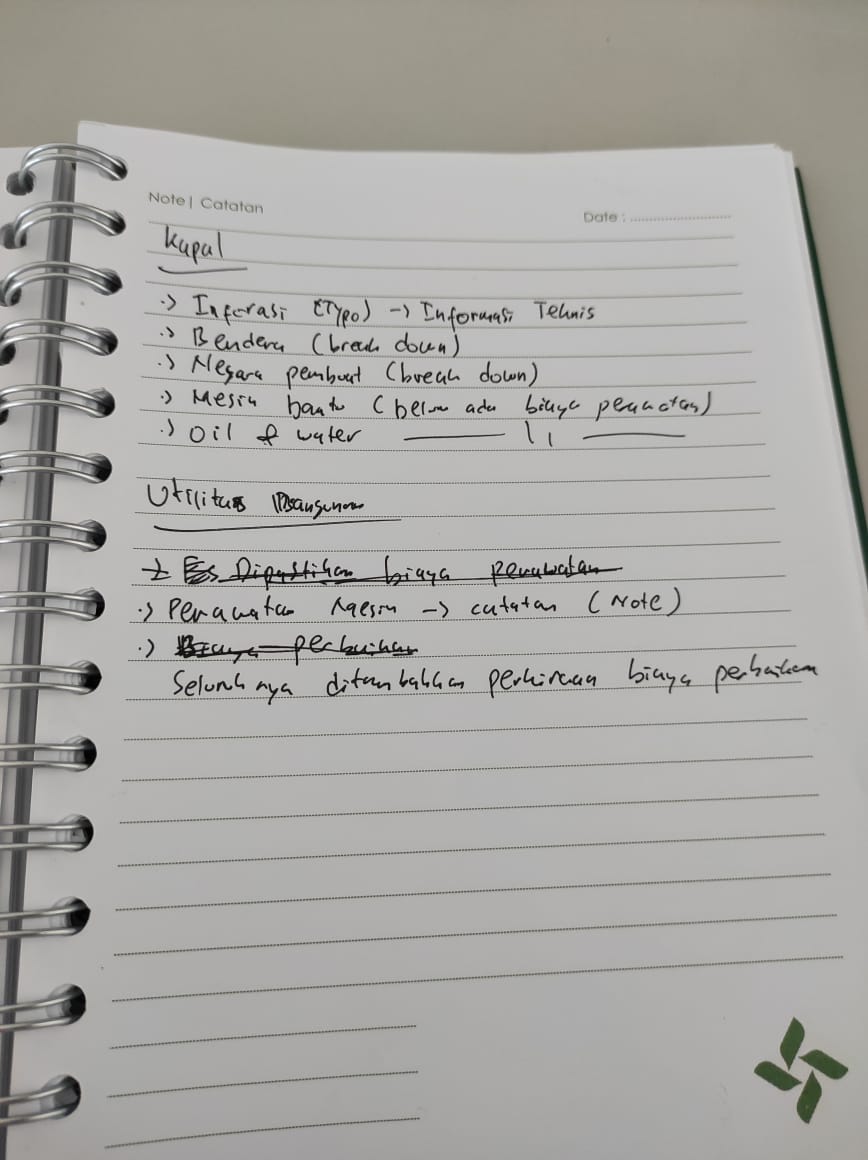 Note | Catatan
Date : ........................
Kapal
·> Inforasi (Typo) -> Informasi Teknis
·> Bendera (break down)
·> Negara pembuat (break down)
·> Mesin bantu (belum ada biaya perawatan)
·> Oil & water ——— 11 ———
Utilitas Bangunan
Dipastikan biaya perawatan
·> Perawatan Mesin -> catatan (Note)
·> Biaya perbaikan
Seluruhnya ditambahkan perkiraan biaya perbaikan